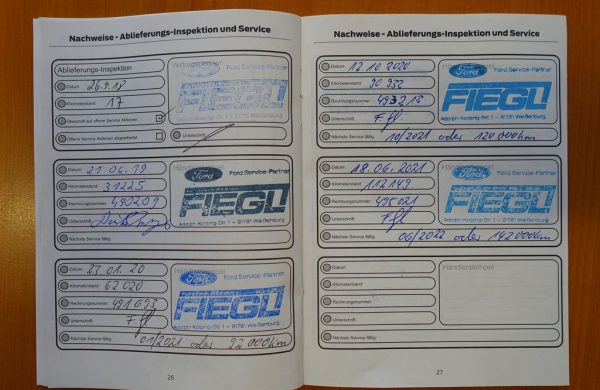 Nachweise - Ablieferungs-Inspektion und Service
Ablieferungs-Inspektion
Datum: 26.9.18
Kilometerstand: 17
Überprüft auf offene Service Aktionen:
Offene Service Aktionen abgearbeitet:
Unterschrift:
Ford Service-Partner
Ford
FIEGL
Datum: 21.06.19
Kilometerstand: 31225
Rechnungsnummer: 490209
Unterschrift:
Nächste Service fällig:
Ford Service-Partner
Ford
FIEGL
Adolph-Kolping-Str. 1 - 91781 Weißenburg
Datum: 23.01.20
Kilometerstand: 62020
Rechnungsnummer: 491693
Unterschrift:
Nächste Service fällig: 01/2021 oder 92000km
Ford Service-Partner
Ford
FIEGL
Adolph-Kolping-Str. 1 - 91781 Weißenburg
26
Nachweise - Ablieferungs-Inspektion und Service
Datum: 12.10.2020
Kilometerstand: 90 932
Rechnungsnummer: 493213
Unterschrift:
Nächste Service fällig: 10/2021 oder 120000km
Ford Service-Partner
Ford
FIEGL
Adolph-Kolping-Str. 1 - 91781 Weißenburg
Datum: 18.06.2021
Kilometerstand: 112149
Rechnungsnummer: 495021
Unterschrift:
Nächste Service fällig: 06/2022 oder 142000km
Ford Service-Partner
Ford
FIEGL
Adolph-Kolping-Str. 1 - 91781 Weißenburg
Datum:
Kilometerstand:
Rechnungsnummer:
Unterschrift:
Nächste Service fällig:
Händlerstempel
27